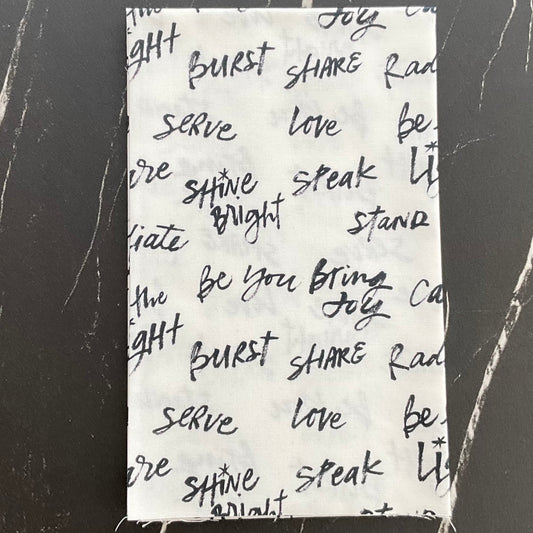 the Joy
BURST SHARE Rad
ght
SERVE love Be
SHiNe SPEAK Li
Bright STAND
iate
Be You Bring
the Joy Ca
ght
BURST SHARE Rad
SERVE love Be
SHiNe SPEAK Li
Bright